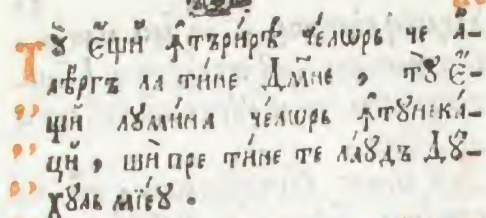 Тꙋ̀ є҆щѝ ꙟ҆търи́рѣ че́лѡрь че а҆-
лѣ́ргъ ла ти́не До́мне , тꙋ̀ є҆-
щѝ лꙋми́на че́лѡрь ꙟ҆тꙋнека́-
цѝ , шѝ пре ти́не те ла́ꙋдъ Дꙋ́-
хꙋль мїе́ꙋ .